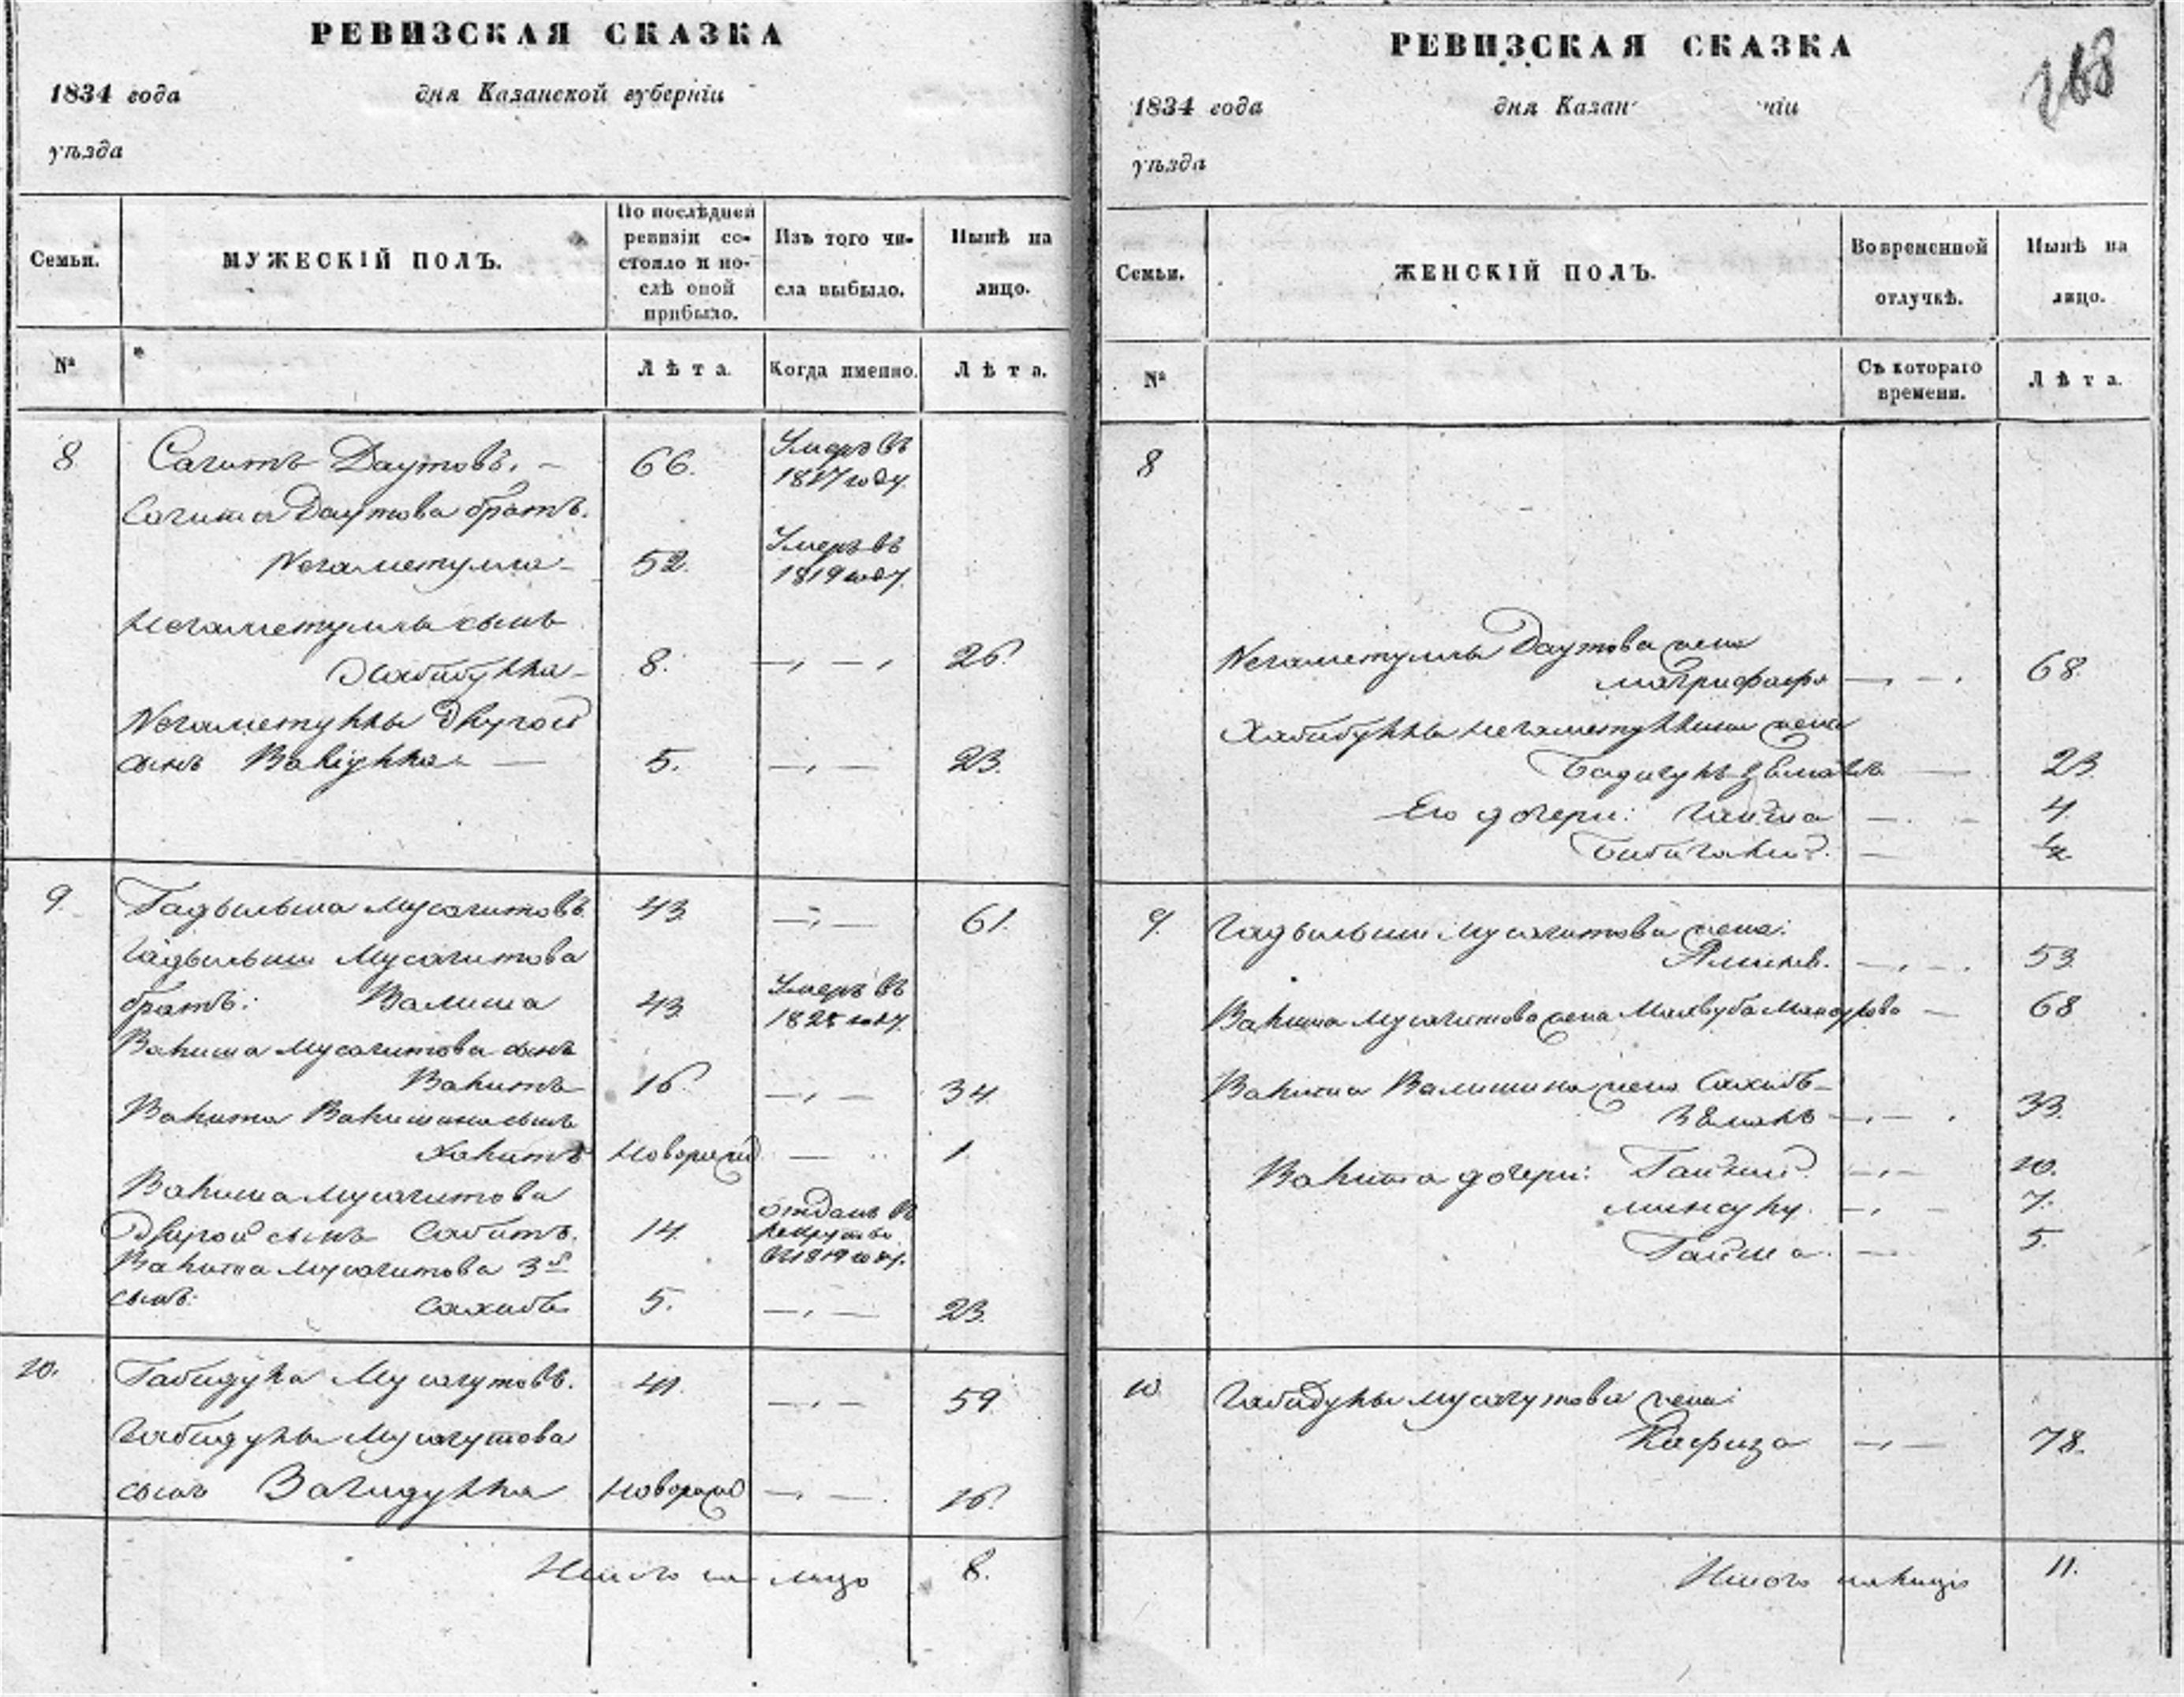 РЕВИЗСКАЯ СКАЗКА
1834 года дня Казанской губерніи
уѣзда
Семьи. МУЖЕСКІЙ ПОЛЪ. По послѣдней ревизіи состояло и послѣ оной прибыло. Изъ того числа выбыло. Нынѣ на лицо.
№ Лѣта. Когда именно. Лѣта.
8 Сагитъ Даутовъ. — 66. Умеръ въ 1817 году.
Сагита Даутова братъ.
Негаметулла — 52. Умеръ въ 1819 году.
Негаметуллы сынъ
Хабибулла — 8. — 26.
Негаметуллы другой
сынъ Валіулла — 5. — 23.
9. Гадьильша Мусагитовъ 43 — 61.
Гадьильши Мусагитова
братъ: Валиша 43 Умеръ въ 1825 году.
Валиша Мусагитова сынъ
Валитъ 16. — 34.
Валита Валишина сынъ
Халитъ Новорожд — 1.
Валиша Мусагитова
Другой сынъ Сабитъ. 14. отданъ въ рекруты въ 1819 году.
Валиша Мусагитова 3й
сынъ: Сахибъ 5. — 23.
10. Габидулла Мусагутовъ. 41. — 59
Габидуллы Мусагутова
сынъ Загидулла Новорожд — 16.
Итого на лицо 8.
РЕВИЗСКАЯ СКАЗКА
268
1834 года дня Казан ніи
уѣзда
Семьи. ЖЕНСКІЙ ПОЛЪ. Во временной отлучкѣ. Нынѣ на лицо.
№ Съ котораго времени. Лѣта.
8
Негаметуллы Даутова жена
— 68.
Хабибуллы Негаметуллина жена
— 23.
Его дочери: Гайша — 4.
— ½
9. Гадьильши Мусагитова жена:
— 53.
Валиша Мусагитова жена — 68
Валита Валишина жена Сахибъ-
Земалъ — 33.
Валита дочери: — 10.
— 7.
Гайша. — 5.
10 Габидуллы Мусагутова жена:
Хафиза — 78.
Итого налицо 11.